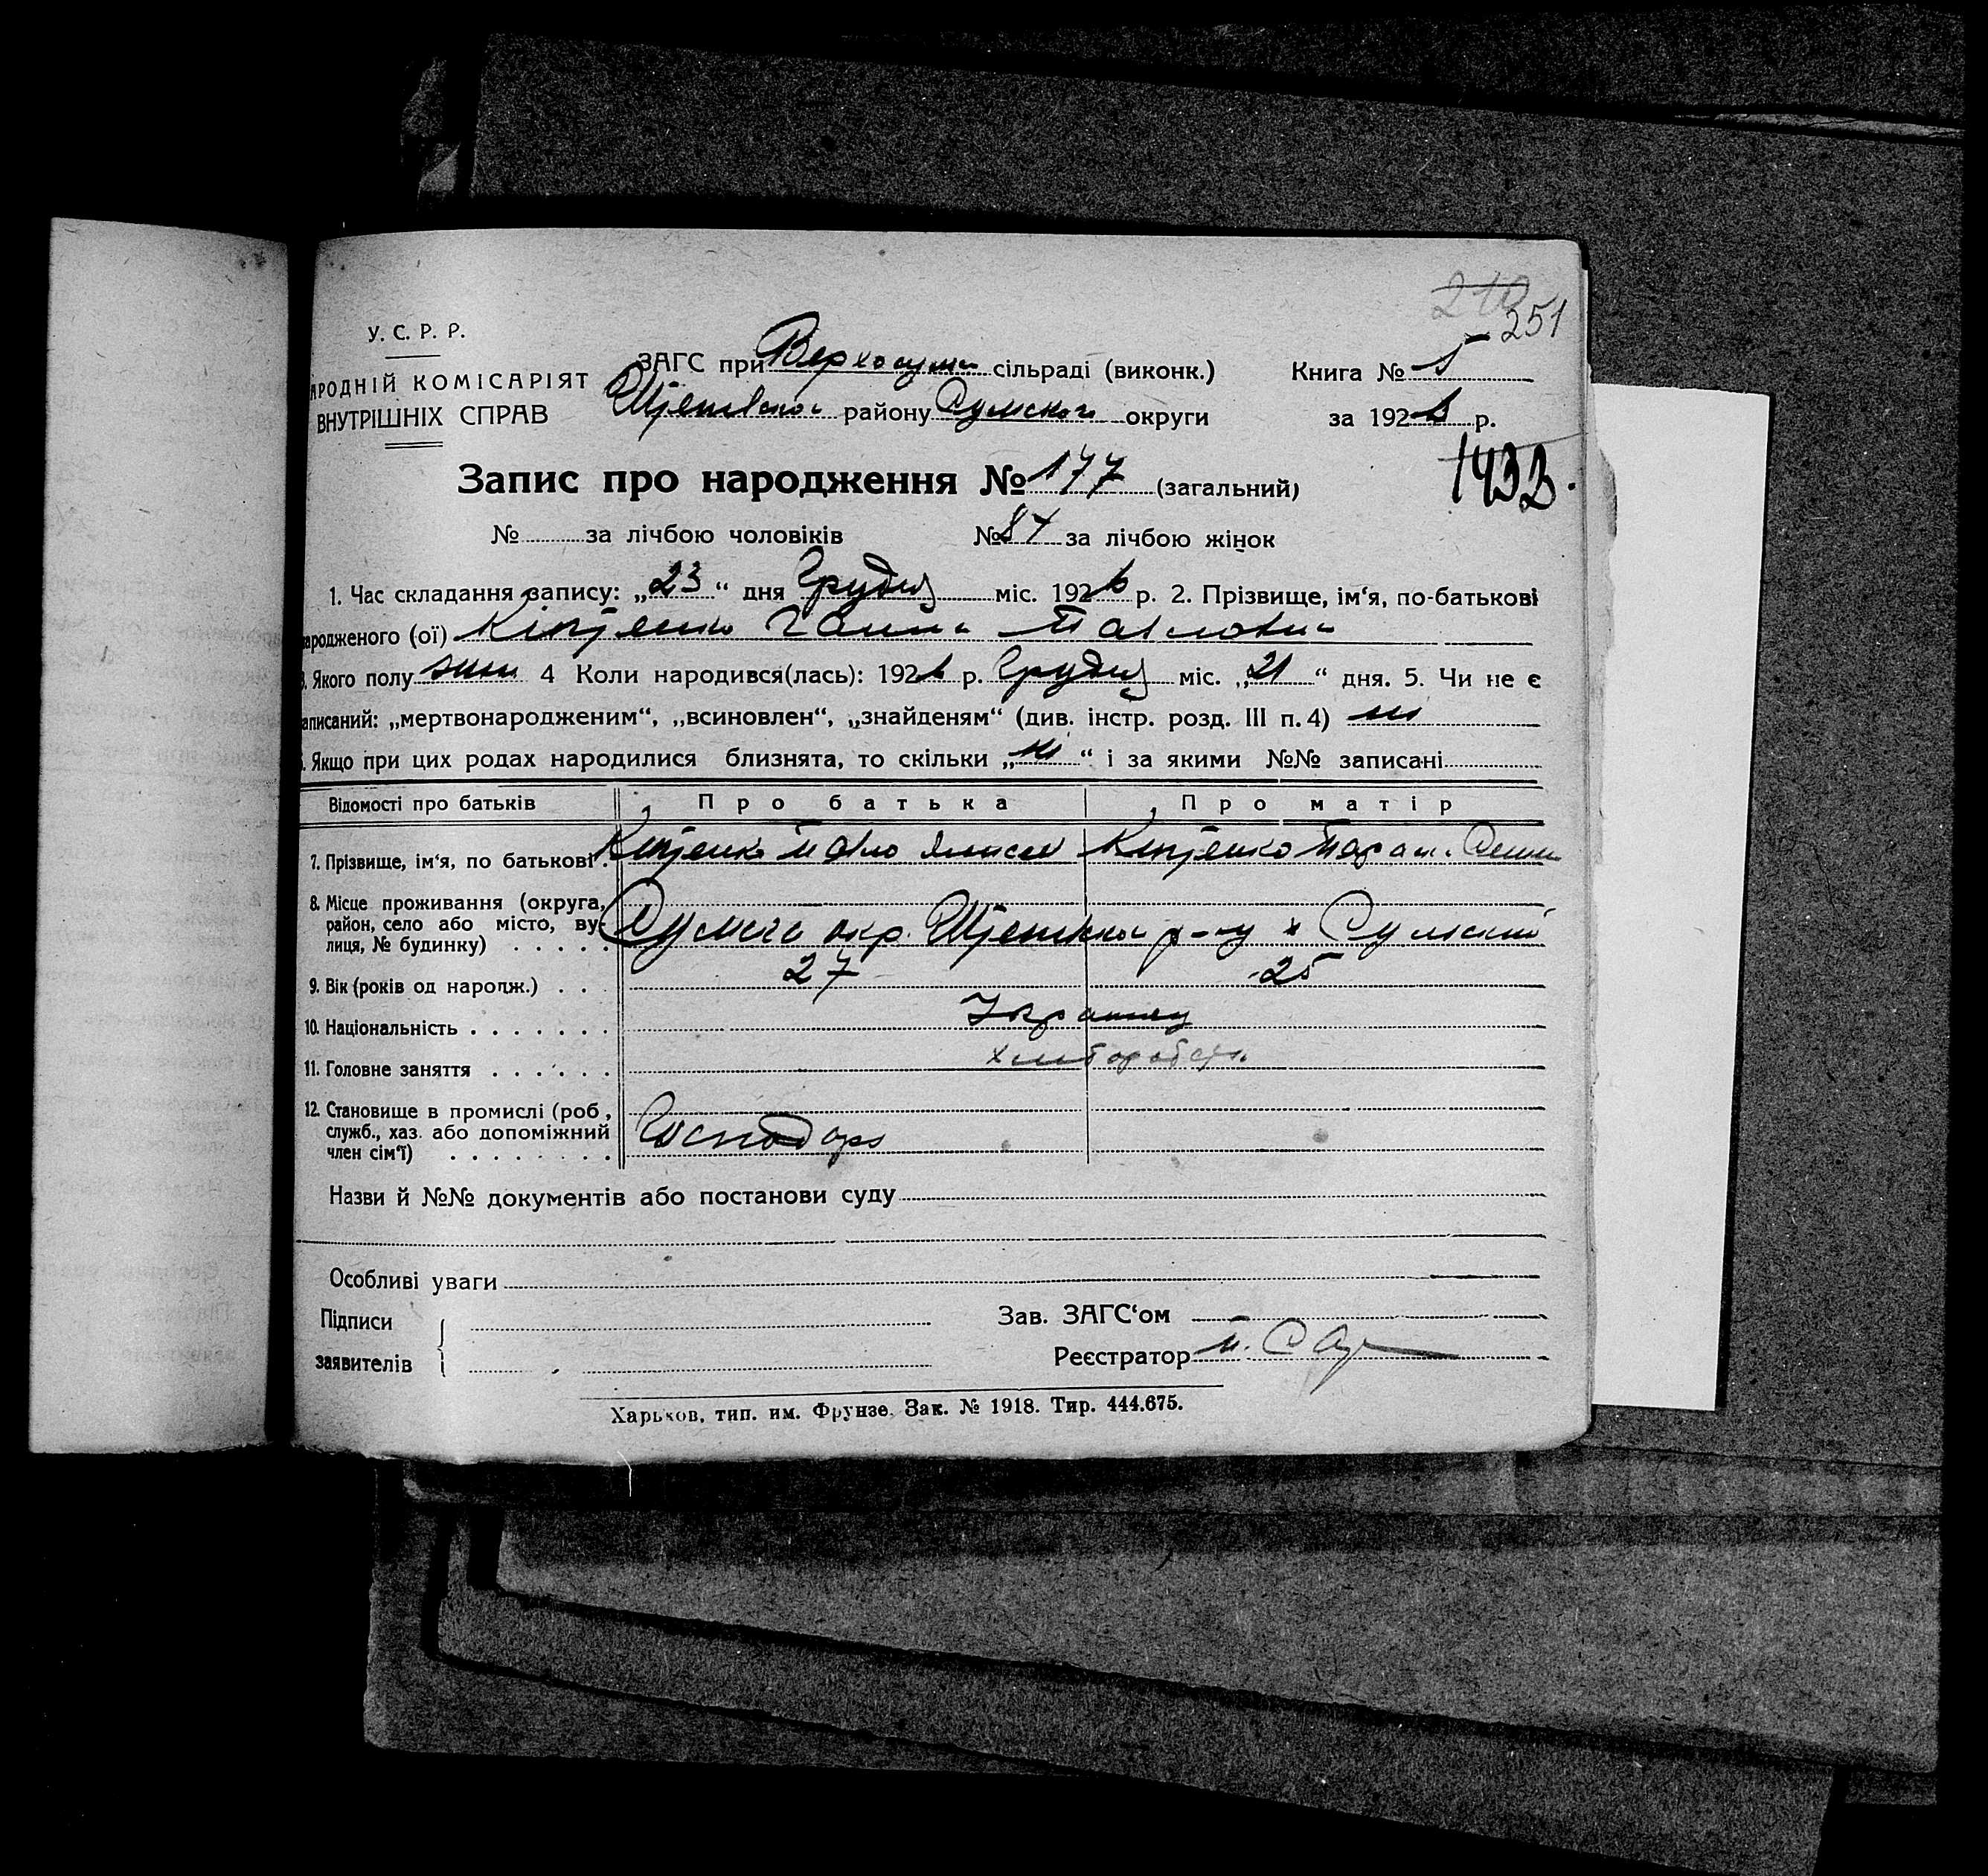 251
У. С. Р. Р.
АРОДНІЙ КОМІСАРІЯТ
ВНУТРІШНІХ СПРАВ
ЗАГС при Верхосум сільраді (виконк.)
району Сумської округи
Книга №
за 1926 р.
Запис про народження № 177 (загальний)
1433.
№ за лічбою чоловіків № 87 за лічбою жінок
1. Час складання запису: „23“ дня Грудня міс. 1926 р. 2. Прізвище, ім‘я, по-батькові
ародженого (ої) Ганна Павловна
3. Якого полу жин 4 Коли народився(лась): 1926 р. Грудня міс. „21“ дня. 5. Чи не є
аписаний: „мертвонародженим“, „всиновлен“, „знайденям“ (див. інстр. розд. III п. 4) ні
6. Якщо при цих родах народилися близнята, то скільки „ні“ і за якими №№ записані
Відомості про батьків Про батька Про матір
7. Прізвище, ім‘я, по батькові Павло
8. Місце проживання (округа, район, село або місто, ву-
лиця, № будинку) Сумска окр. р-ну х Сумский
9. Вік (років од народж.) 27 25
10. Національність Украинц
11. Головне заняття хлібороб
12. Становище в промислі (роб, служб., хаз. або допоміжний
член сім‘ї) Господарь
Назви й №№ документів або постанови суду
Особливі уваги
Підписи
заявителів
Зав. ЗАГС‘ом
Реєстратор
Харьков, тип. им. Фрунзе. Зак. № 1918. Тир. 444.675.